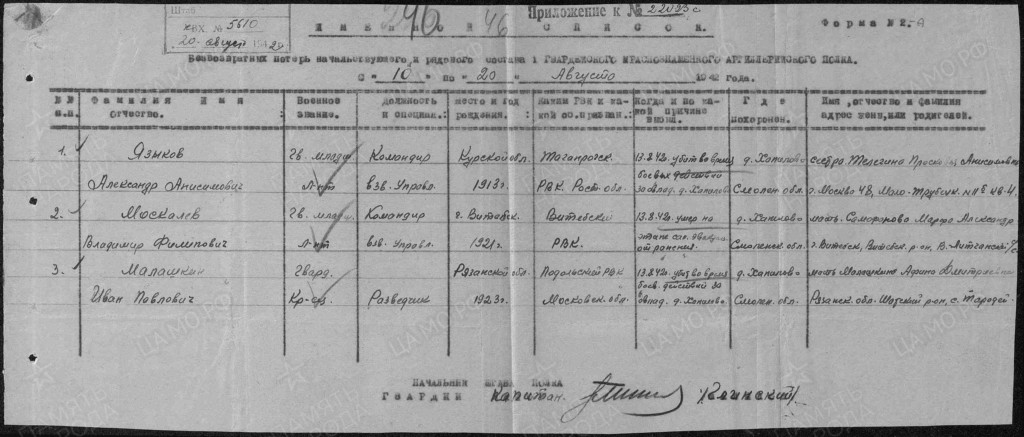 Штаб
вх. № 5610
20 август 1942
246
46
Приложение к № 22093с
ИМЕННОЙ СПИСОК.
Форма № 2-А
Безвозвратных потерь начальствующего и рядового состава 1 ГВАРДЕЙСКОГО КРАСНОЗНАМЕННОГО АРТИЛЛЕРИЙСКОГО ПОЛКА.
С "10" по "20" Августа 1942 года.
№№ Фамилия Имя Военное Должность Место и год Каким РВК и ка- Когда и по ка- Где Имя, отчество и фамилия
п.п. Отчество. звание. и специал.: рождения. кой со.призван.: кой причине похоронен. адрес жены, или родителей.
выбыл.
1. Языков Гв. млад. Командир Курской обл. Таганрогск. 13.8.42г. убит во время д. Хапилово сестра Телегина Анисимовна
боевых действий
Александр Анисимович Л-нт взв. Управл. 1913г. РВК. Рост. обл. за овлад. д. Хапилово Смолен. обл. г. Москва 48, кв-4.
2. Москалев Гв. млад. Командир г. Витебск. Витебский 13.8.42г. умер на д. Хапилово мать Марфа Александр
этапе сан. эвакуа.
Владимир Филипович Л-нт взв. Управл. 1921г. РВК. от ранения. Смоленск. обл. г. Витебск, Витебск. р-он,
3. Малашкин Гвард. Рязанской обл. Подольский РВК 13.8.42г. убит во время д. Хапилово мать Малашкина Дмитриевна
боев. действий за
Иван Павлович Кр-ец. Разведчик 1923г. Московск. обл. овлад. д. Хапилово Смолен. обл. Рязанск. обл. Шацкий р-он, с.
НАЧАЛЬНИК ШТАБА ПОЛКА
ГВАРДИИ Капитан.
ЦАМО.РФ
ПАМЯТЬ НАРОДА